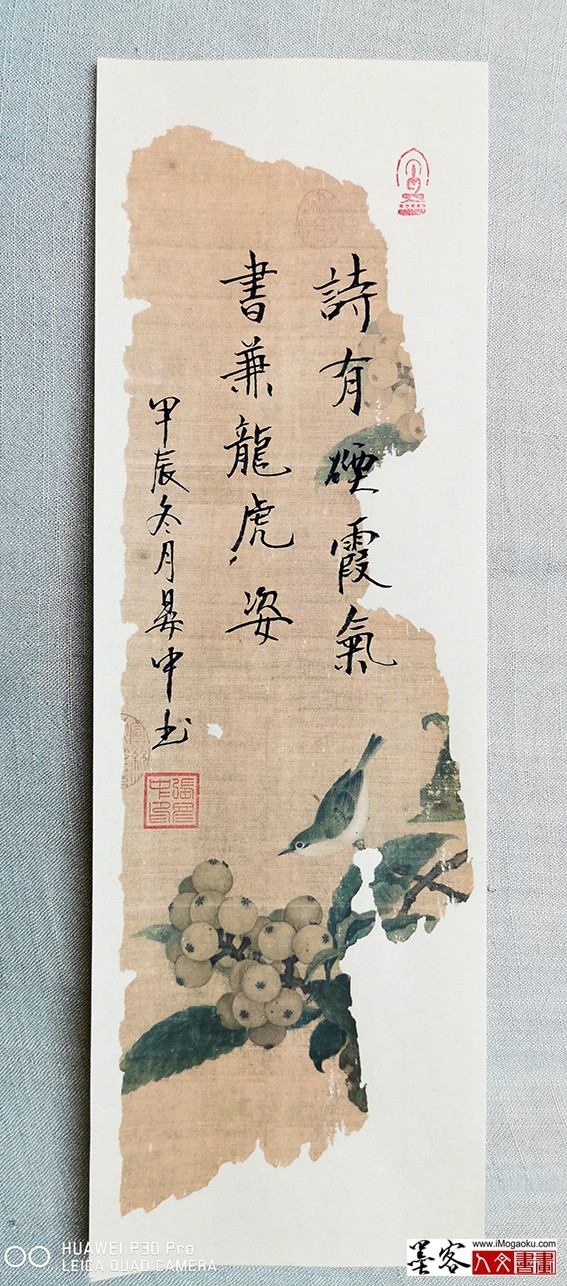 詩有煙霞氣
書兼龍虎姿
甲辰冬月中书
HUAWEI P30 Pro
LEICA QUAD CAMERA
墨客
www.iMogaoku.com
人文書畫